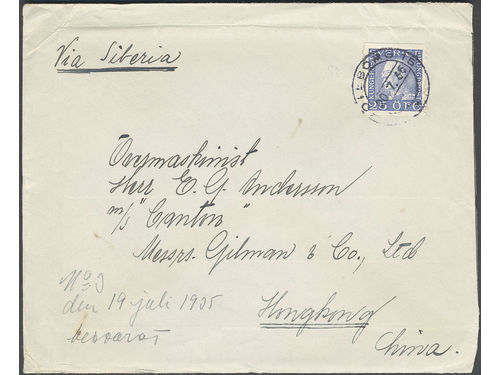 Via Siberia
SVERIGE
25 ÖRE
Övermaskinist
Herr E. G. Andersson
m/s "Canton"
Messrs. Gilman & Co., Ltd
Hongkong
China.
No 3
den 19 juli 1935
besvarat